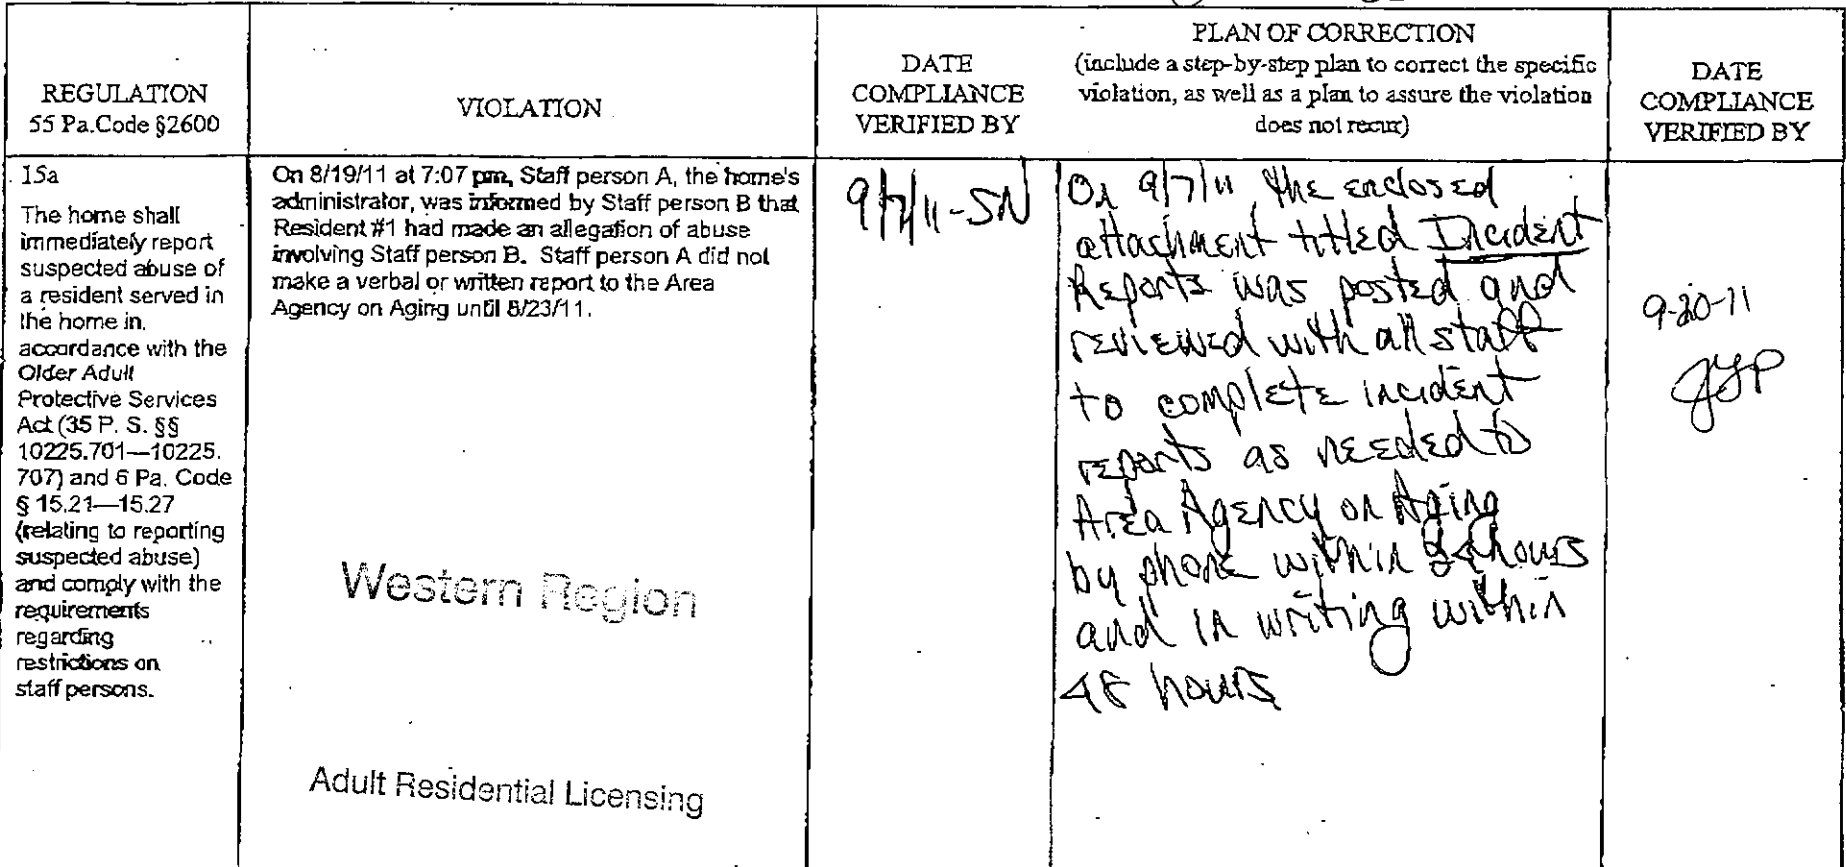 REGULATION
55 Pa.Code §2600
VIOLATION
DATE
COMPLIANCE
VERIFIED BY
PLAN OF CORRECTION
(include a step-by-step plan to correct the specific
violation, as well as a plan to assure the violation
does not recur)
DATE
COMPLIANCE
VERIFIED BY
15a
The home shall
immediately report
suspected abuse of
a resident served in
the home in.
accordance with the
Older Adult
Protective Services
Act (35 P. S. §§
10225.701—10225.
707) and 6 Pa. Code
§ 15.21—15.27
(relating to reporting
suspected abuse)
and comply with the
requirements
regarding
restrictions on
staff persons.
On 8/19/11 at 7:07 pm, Staff person A, the home's
administrator, was informed by Staff person B that
Resident #1 had made an allegation of abuse
involving Staff person B. Staff person A did not
make a verbal or written report to the Area
Agency on Aging until 8/23/11.
Western Region
Adult Residential Licensing
9/7/11-SN
On 9/7/11 the enclosed
attachment titled Incident
Reports was posted and
reviewed with all staff
to complete incident
reports as needed to
Area Agency on Aging
by phone within 24 hours
and in writing within
48 hours
9-20-11